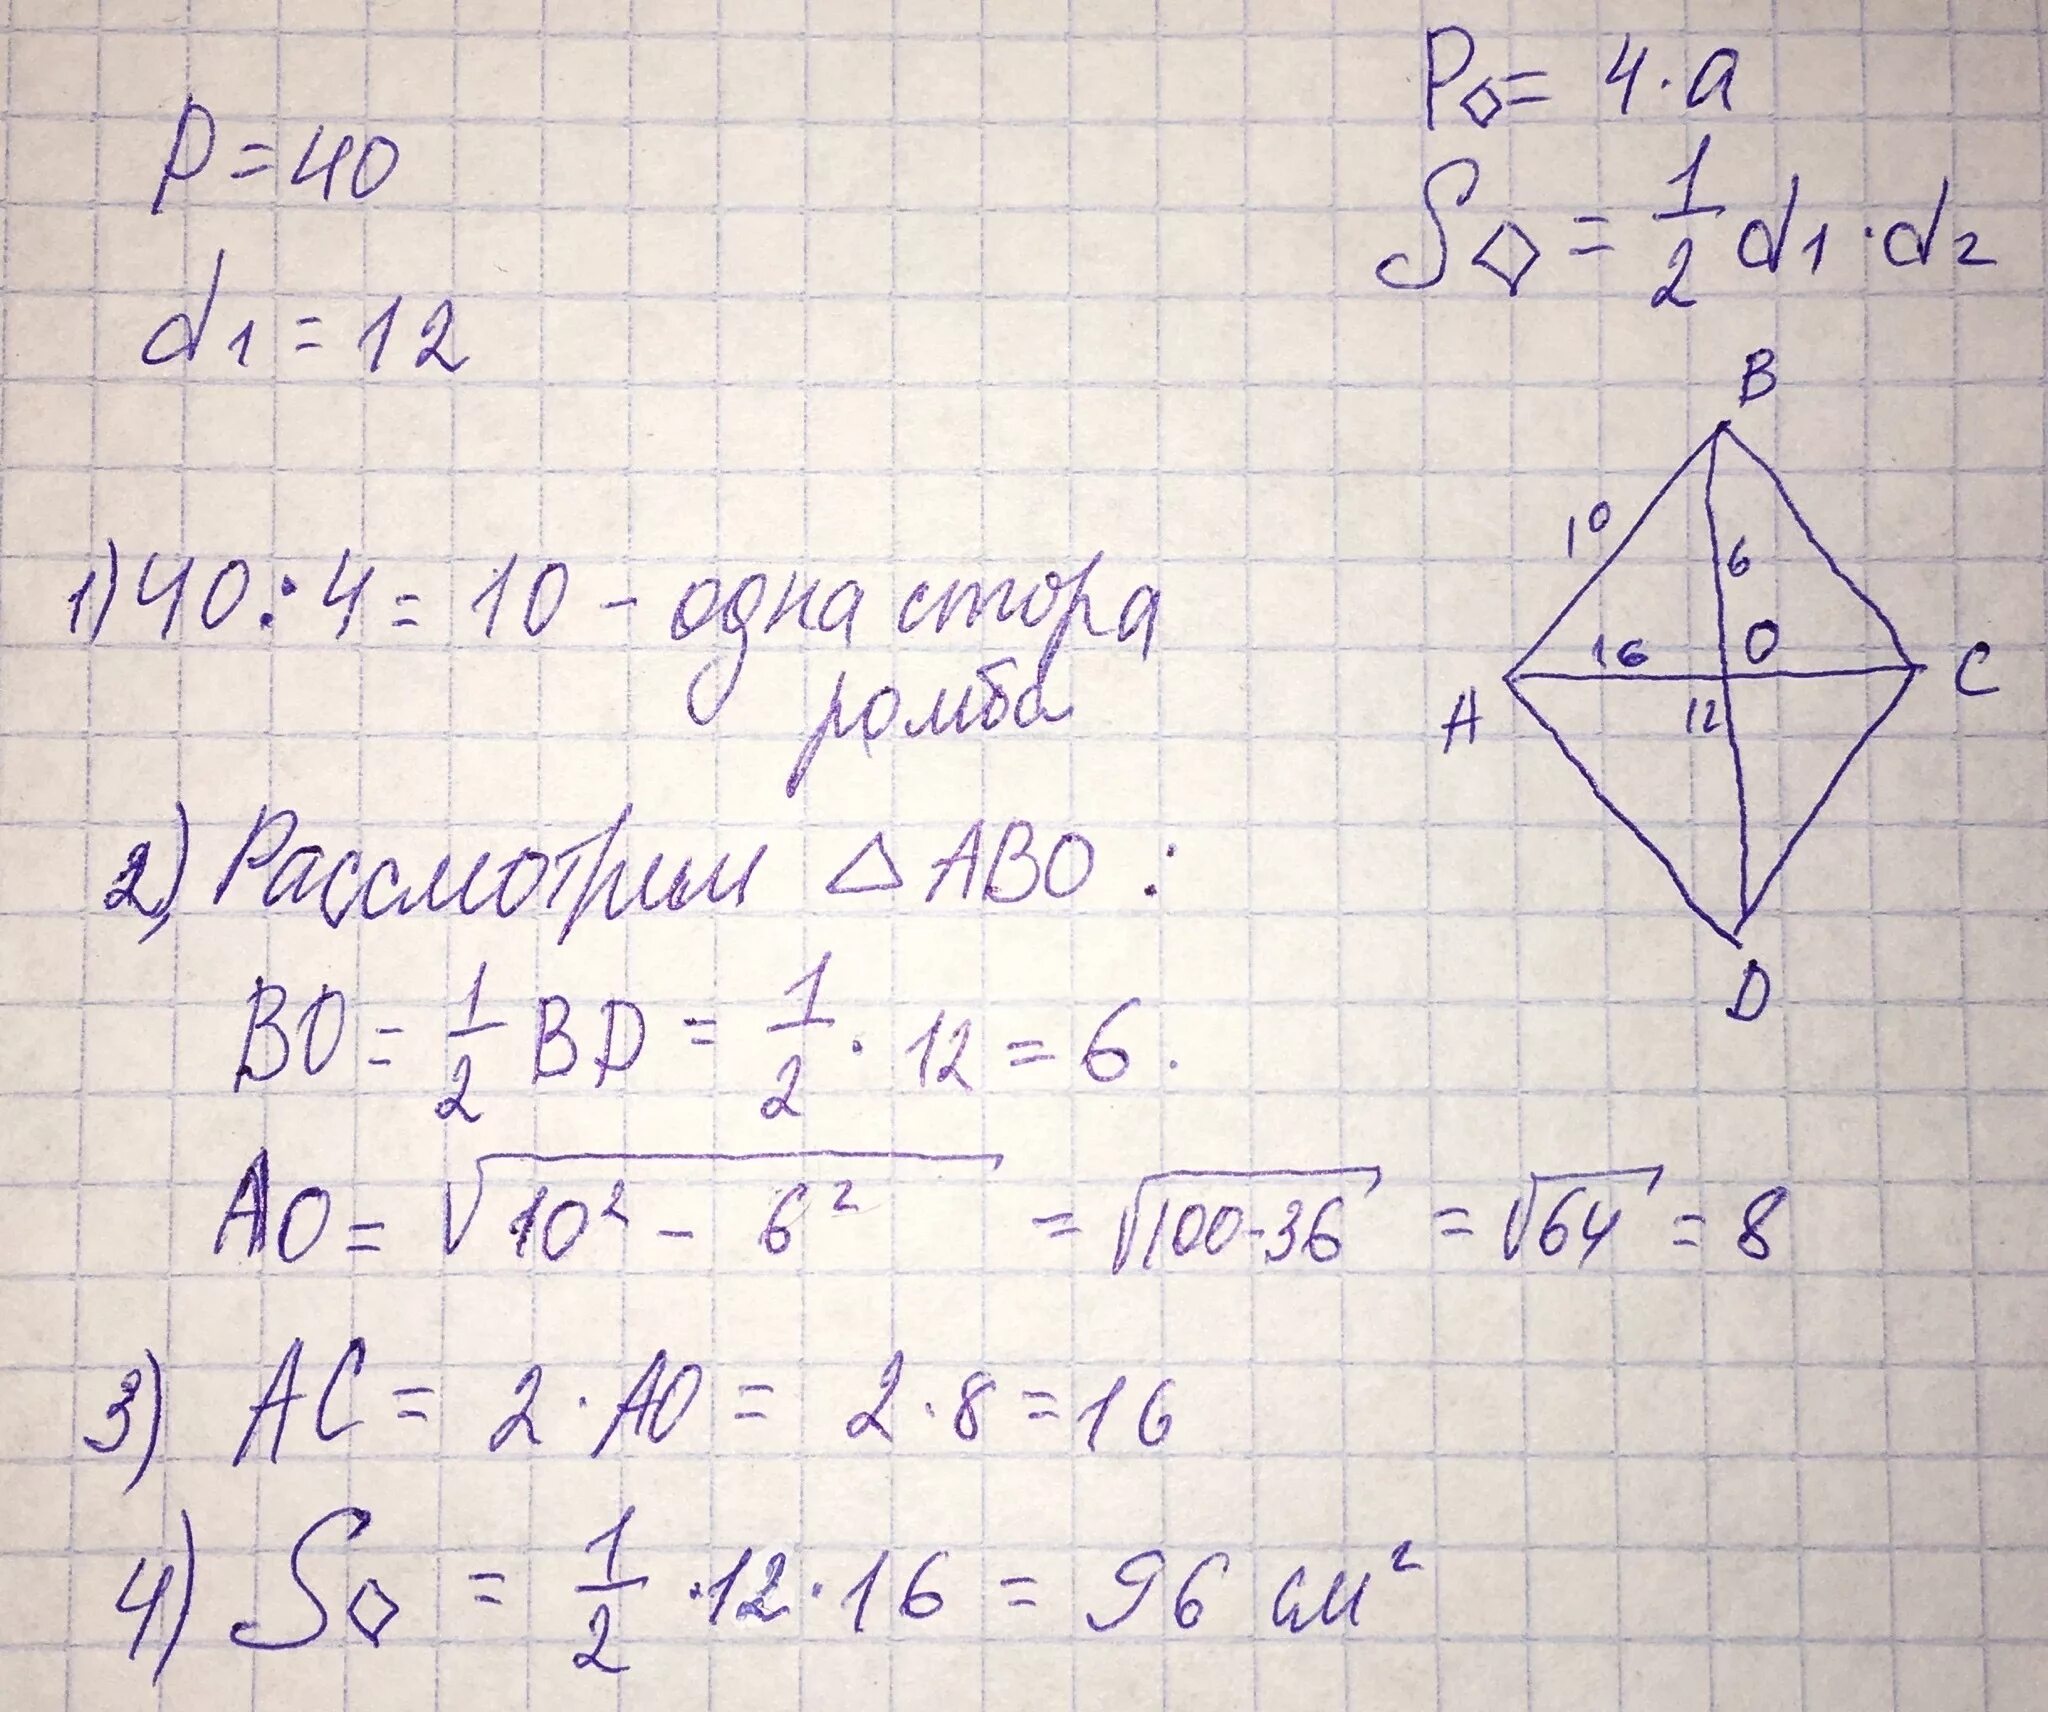 P◇ = 4·a
P = 40
S◇ = 1/2 d1·d2
d1 = 12
B
10
6
16
O
A
12
C
D
1) 40:4 = 10 - одна стора
ромба
2) Рассмотрим △ABO:
BO = 1/2 BD = 1/2 · 12 = 6.
AO = √(10² - 6²) = √(100-36) = √64 = 8
3) AC = 2·AO = 2·8 = 16
4) S◇ = 1/2 ·12·16 = 96 см²